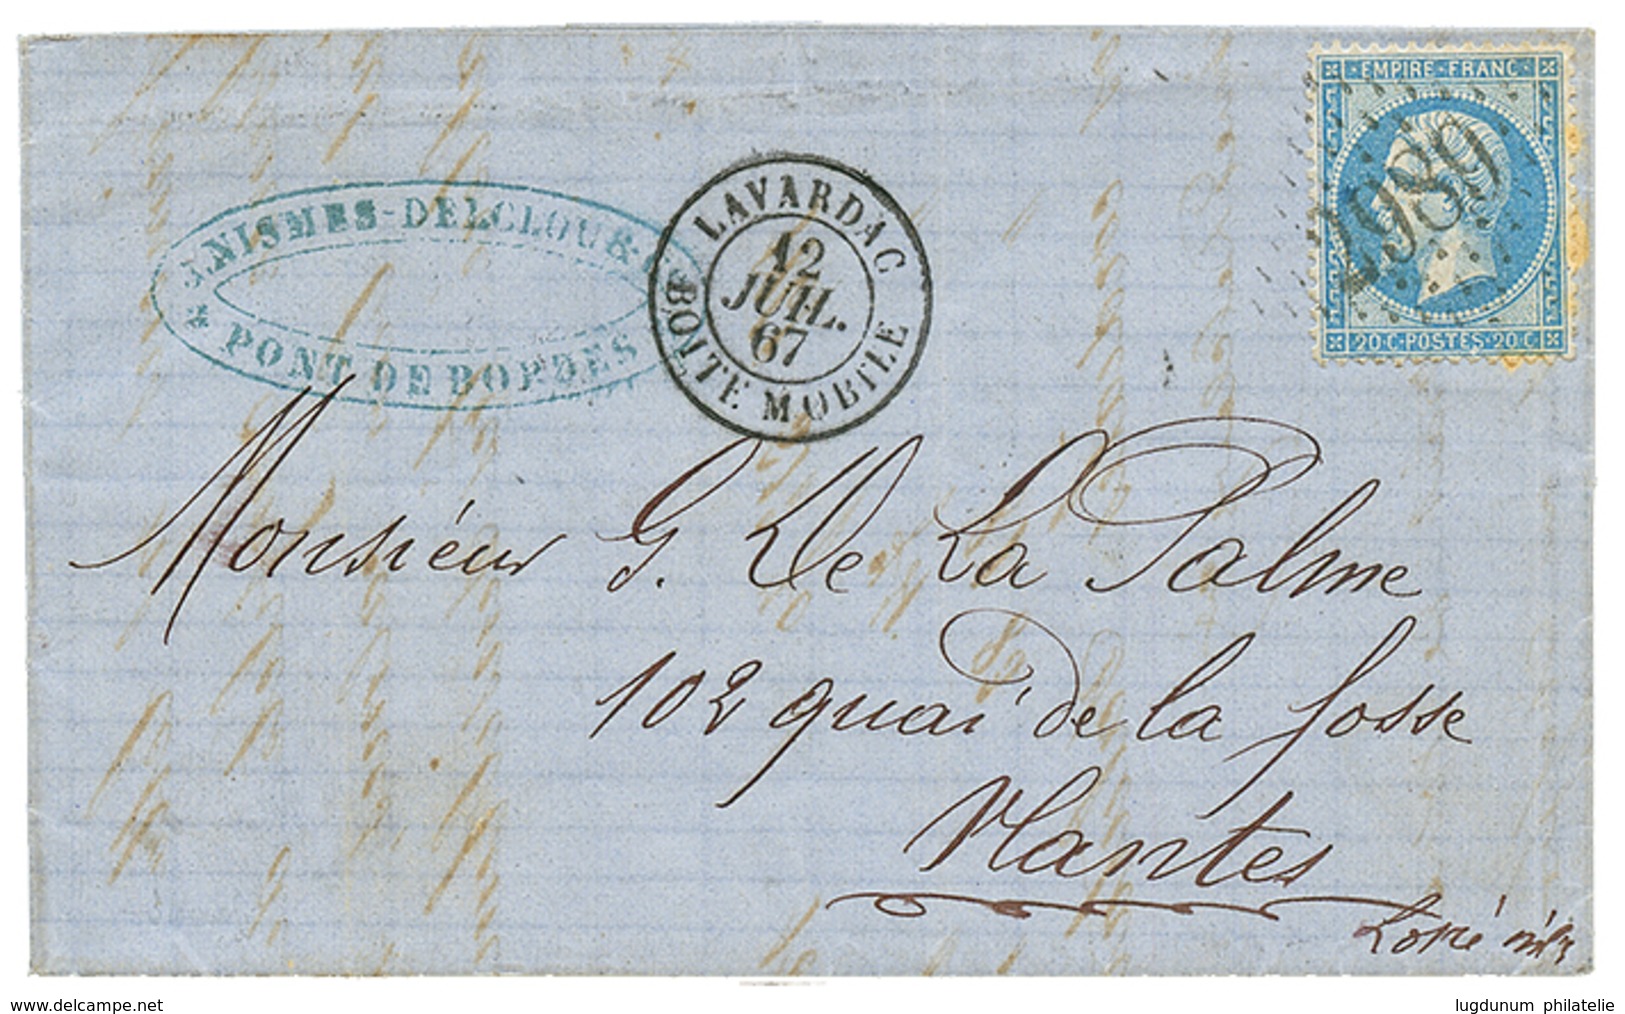 EMPIRE FRANC
2989
20 C POSTES 20 C
J. NISMES-DELCLOU
PONT DE BORDES
LAVARDAC
12
JUIL.
67
BOITE MOBILE
Monsieur G. De La Palme
102 quai de la fosse
Nantes
www.delcampe.net
lugdunum philatelie